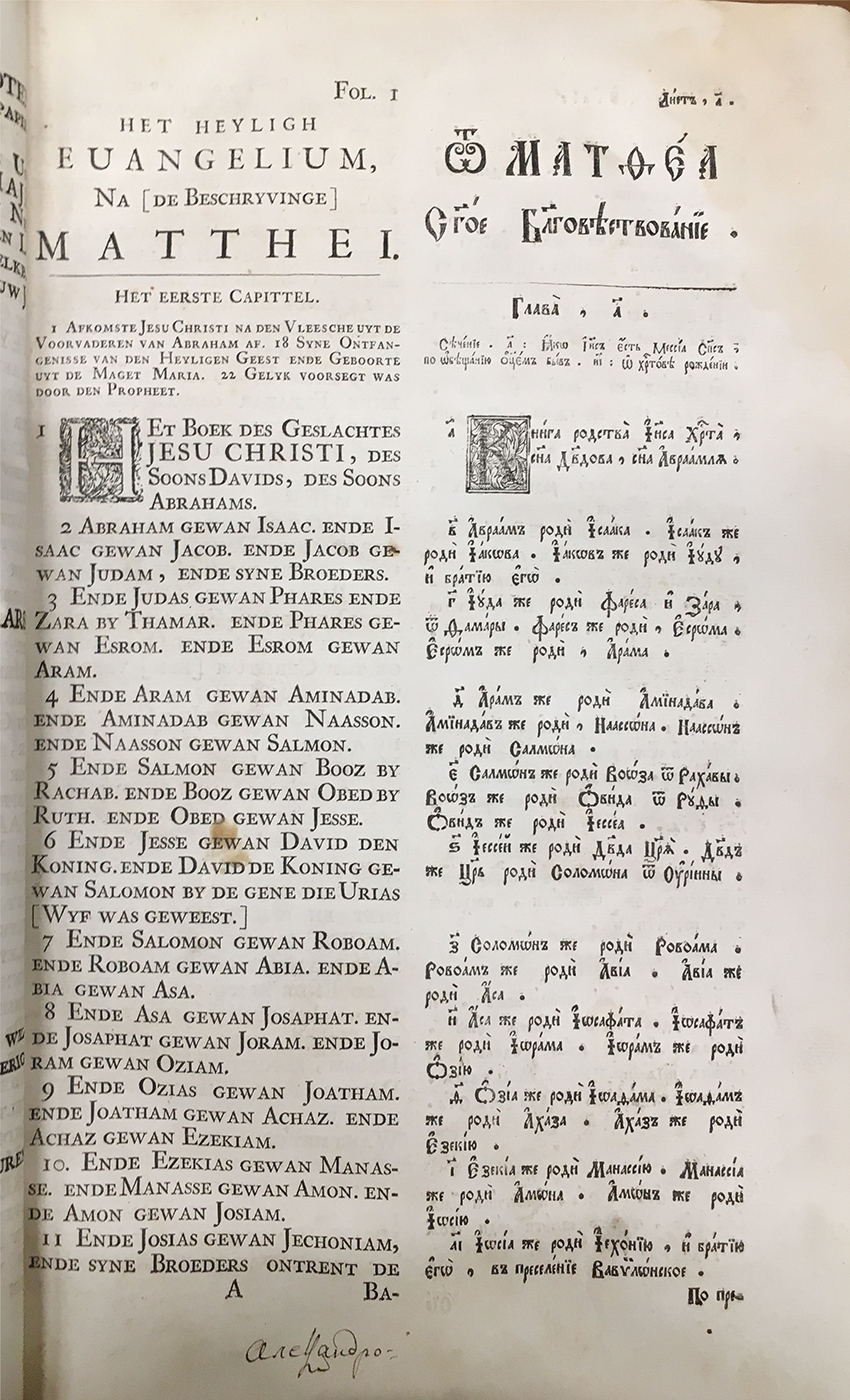 FOL. 1
HET HEYLIGH
EUANGELIUM,
NA [DE BESCHRYVINGE]
MATTHEI.
HET EERSTE CAPITTEL.
1 AFKOMSTE JESU CHRISTI NA DEN VLEESCHE UYT DE
VOORVADEREN VAN ABRAHAM AF. 18 SYNE ONTFAN-
GENISSE VAN DEN HEYLIGEN GEEST ENDE GEBOORTE
UYT DE MAGET MARIA. 22 GELYK VOORSEGT WAS
DOOR DEN PROPHEET.
1 HET BOEK DES GESLACHTES
JESU CHRISTI, DES
SOONS DAVIDS, DES SOONS
ABRAHAMS.
2 ABRAHAM GEWAN ISAAC. ENDE I-
SAAC GEWAN JACOB. ENDE JACOB GE-
WAN JUDAM, ENDE SYNE BROEDERS.
3 ENDE JUDAS GEWAN PHARES ENDE
ZARA BY THAMAR. ENDE PHARES GE-
WAN ESROM. ENDE ESROM GEWAN
ARAM.
4 ENDE ARAM GEWAN AMINADAB.
ENDE AMINADAB GEWAN NAASSON.
ENDE NAASSON GEWAN SALMON.
5 ENDE SALMON GEWAN BOOZ BY
RACHAB. ENDE BOOZ GEWAN OBED BY
RUTH. ENDE OBED GEWAN JESSE.
6 ENDE JESSE GEWAN DAVID DEN
KONING. ENDE DAVID DE KONING GE-
WAN SALOMON BY DE GENE DIE URIAS
[WYF WAS GEWEEST.]
7 ENDE SALOMON GEWAN ROBOAM.
ENDE ROBOAM GEWAN ABIA. ENDE A-
BIA GEWAN ASA.
8 ENDE ASA GEWAN JOSAPHAT. EN-
DE JOSAPHAT GEWAN JORAM. ENDE JO-
RAM GEWAN OZIAM.
9 ENDE OZIAS GEWAN JOATHAM.
ENDE JOATHAM GEWAN ACHAZ. ENDE
ACHAZ GEWAN EZEKIAM.
10. ENDE EZEKIAS GEWAN MANAS-
SE. ENDE MANASSE GEWAN AMON. EN-
DE AMON GEWAN JOSIAM.
11 ENDE JOSIAS GEWAN JECHONIAM,
ENDE SYNE BROEDERS ONTRENT DE
A BA-
Ли́стъ, а҃.
Ѿ МАТѲЕ́А
Ст҃о́е Бл҃говѣствова́нїе.
Глава̀, а҃.
а҃ Кни́га родства̀ І҆и҃са Хр҃та̀,
сн҃а Дв҃дова, сн҃а А҆враа́млѧ.
в҃ А҆враа́мъ родѝ І҆саа́ка. І҆саа́къ же
родѝ І҆а́кѡва. І҆а́кѡвъ же родѝ І҆ꙋ́дꙋ,
и҆ бра́тїю є҆гѡ̀.
г҃ І҆ꙋ́да же родѝ Фаре́са и҆ За́ра,
ѿ Ѳама́ры. Фаре́съ же родѝ, Е҆срѡ́ма.
Е҆срѡ́мъ же родѝ, А҆ра́ма.
д҃ А҆ра́мъ же родѝ А҆мїнада́ва.
А҆мїнада́въ же родѝ, Наассѡ́на. Наассѡ́нъ
же родѝ Салмѡ́на.
є҃ Салмѡ́нъ же родѝ Воѡ́за ѿ Раха́вы.
Воѡ́зъ же родѝ Ѡ҆ви́да ѿ Рꙋ́ѳы.
Ѡ҆ви́дъ же родѝ І҆ессе́а.
ѕ҃ І҆ессе́й же родѝ Дв҃да Цр҃ѧ̀. Дв҃дъ
же Цр҃ь родѝ Соломѡ́на ѿ Оу҆рі́ины.
з҃ Соломѡ́нъ же родѝ Ровоа́ма.
Ровоа́мъ же родѝ А҆ві́а. А҆ві́а же
родѝ А҆́са.
и҃ А҆́са же родѝ І҆ѡсафа́та. І҆ѡсафа́тъ
же родѝ І҆ѡра́ма. І҆ѡра́мъ же родѝ
Ѡ҆зі́ю.
ѳ҃ Ѡ҆зі́а же родѝ І҆ѡаѳа́ма. І҆ѡаѳа́мъ
же родѝ А҆ха́за. А҆ха́зъ же родѝ
Е҆зекі́ю.
і҃ Е҆зекі́а же родѝ Манассі́ю. Манассі́а
же родѝ А҆мѡ́на. А҆мѡ́нъ же родѝ
І҆ѡсі́ю.
аі҃ І҆ѡсі́а же родѝ І҆ехо́нїю, и҆ бра́тїю
є҆гѡ̀, въ преселе́нїе Вавѷлѡ́нское.
По пре-